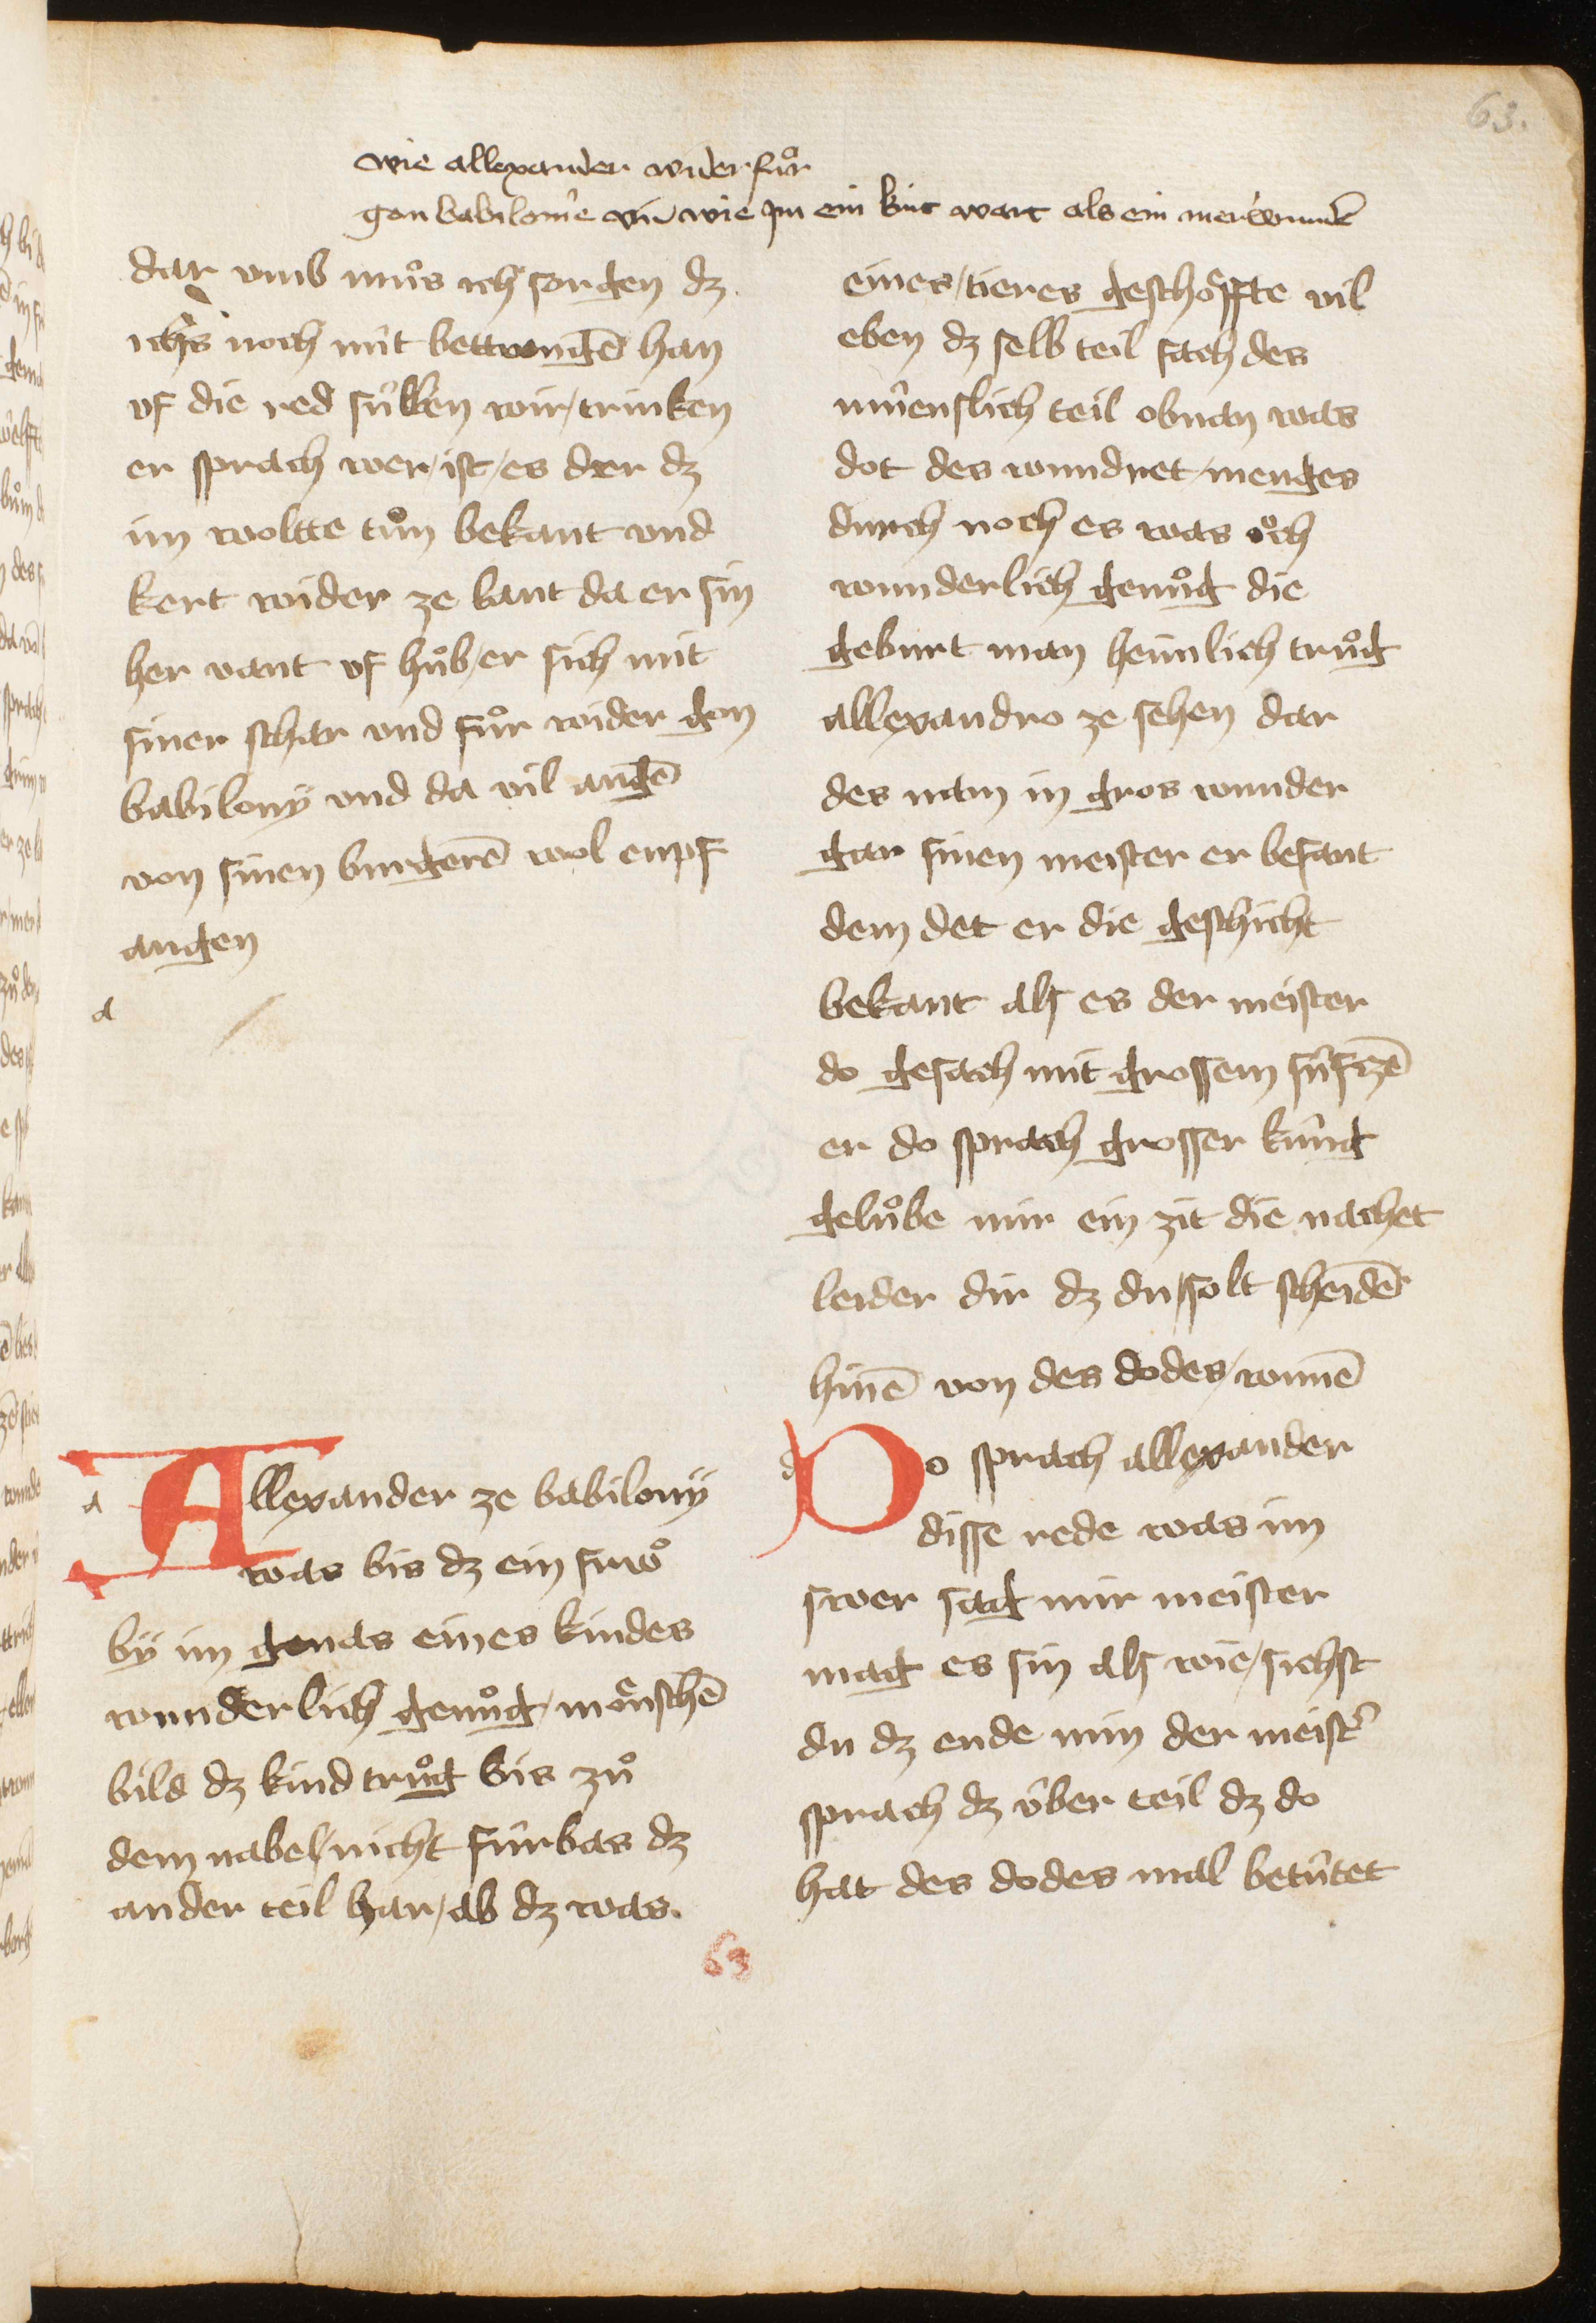 63.
wie allexander wider fuͦr
gen babilonie vn̄ wie Im ein kint wart als ein merwundē
dar vmb muͦs ich sorgen dz
ichs noch nit bettwongē han
vf die red suͤllen wir / trinken
er sprach wer / ist / es der dz
im woltte tuͦn bekant vnd
kert wider ze lant da er sin
her vant vf huͦb / er sich mit
siner schar vnd fuͦr wider gen
babilony vnd da vil angē
von sinen burgerē wol empf
angen
a
a
Allexander ze babilony
was bis dz ein frwͦ
by im genas eines kindes
wunderlich genuͦg / moͤnschē
bild dz kind truͦg bis zuͦ
dem nabel / nicht fuͤrbas dz
ander teil har / ab dz was.
eines / tieres geschoͤffte vil
eben dz selb teil sach des
muͤenslich teil obnan was
dot des wundret / menges
durch noch es was oͮch
wunderlich genuͦg die
geburt man heimlich truͦg
allexandro ze sehen dar
des nam in gros wunder
gar sinen meister er besant
dem det er die geschicht
bekant als es der meister
do gesach mit grossem suͤfczē
er do sprach grosser kuͤng
geluͦbe mir ein zit die nachet
leider dir dz du / solt scheidē
hinē von des dodes / wunē
d
Do sprach allexander
disse rede was im
swer sag mir meister
mag es sin als wie / sichst
du dz ende min der meist͛
sprach dz v̂ber teil dz do
hat des dodes mal betuͤtet
63